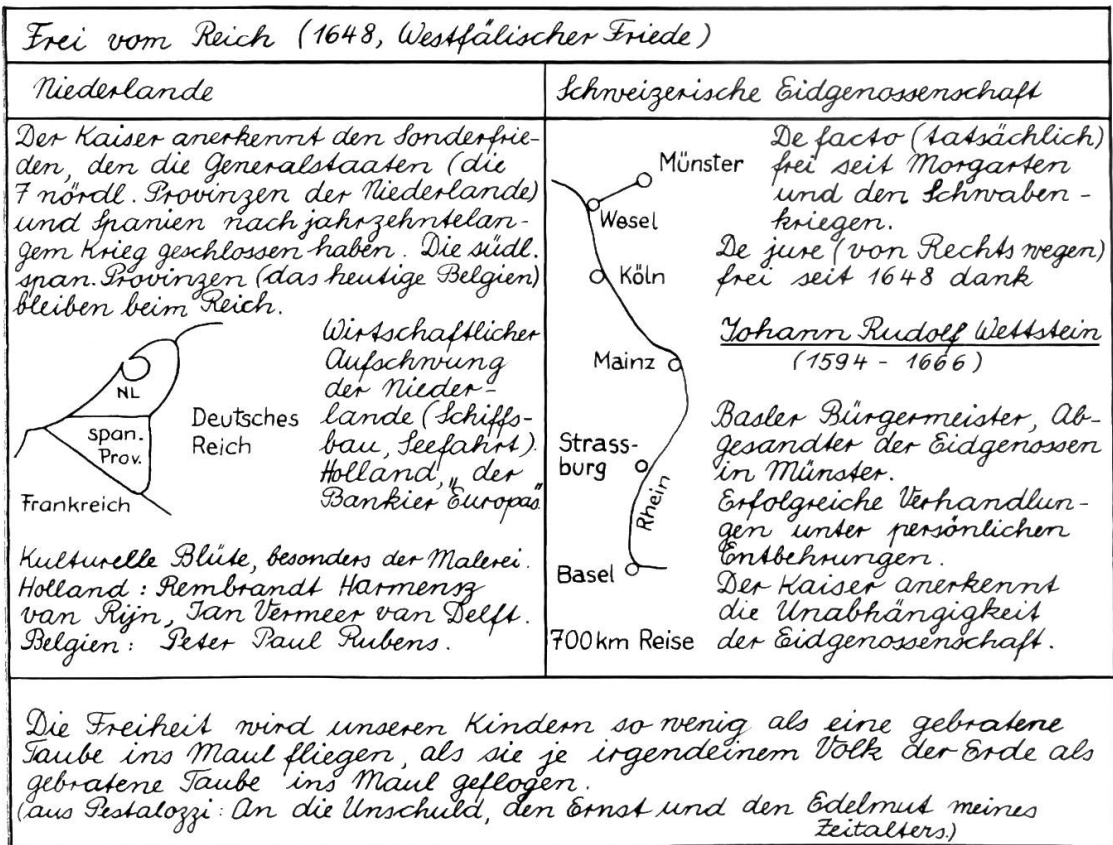 Frei vom Reich (1648, Westfälischer Friede)
Niederlande
Der Kaiser anerkennt den Sonderfrie-
den, den die Generalstaaten (die
7 nördl. Provinzen der Niederlande)
und Spanien nach jahrzehntelan-
gem Krieg geschlossen haben. Die südl.
span. Provinzen (das heutige Belgien)
bleiben beim Reich.
NL
span.
Prov.
Deutsches
Reich
Frankreich
Wirtschaftlicher
Aufschwung
der Nieder-
lande (Schiffs-
bau, Seefahrt).
Holland, „der
Bankier Europas"
Kulturelle Blüte, besonders der Malerei.
Holland: Rembrandt Harmensz
van Rijn, Jan Vermeer van Delft.
Belgien: Peter Paul Rubens.
Schweizerische Eidgenossenschaft
Münster
Wesel
Köln
Mainz
Strass-
burg
Rhein
Basel
700km Reise
De facto (tatsächlich)
frei seit Morgarten
und den Schwaben-
kriegen.
De jure (von Rechts wegen)
frei seit 1648 dank
Johann Rudolf Wettstein
(1594 - 1666)
Basler Bürgermeister, Ab-
gesandter der Eidgenossen
in Münster.
Erfolgreiche Verhandlun-
gen unter persönlichen
Entbehrungen.
Der Kaiser anerkennt
die Unabhängigkeit
der Eidgenossenschaft.
Die Freiheit wird unseren Kindern so wenig als eine gebratene
Taube ins Maul fliegen, als sie je irgendeinem Volk der Erde als
gebratene Taube ins Maul geflogen.
(aus Pestalozzi: An die Unschuld, den Ernst und den Edelmut meines
Zeitalters.)